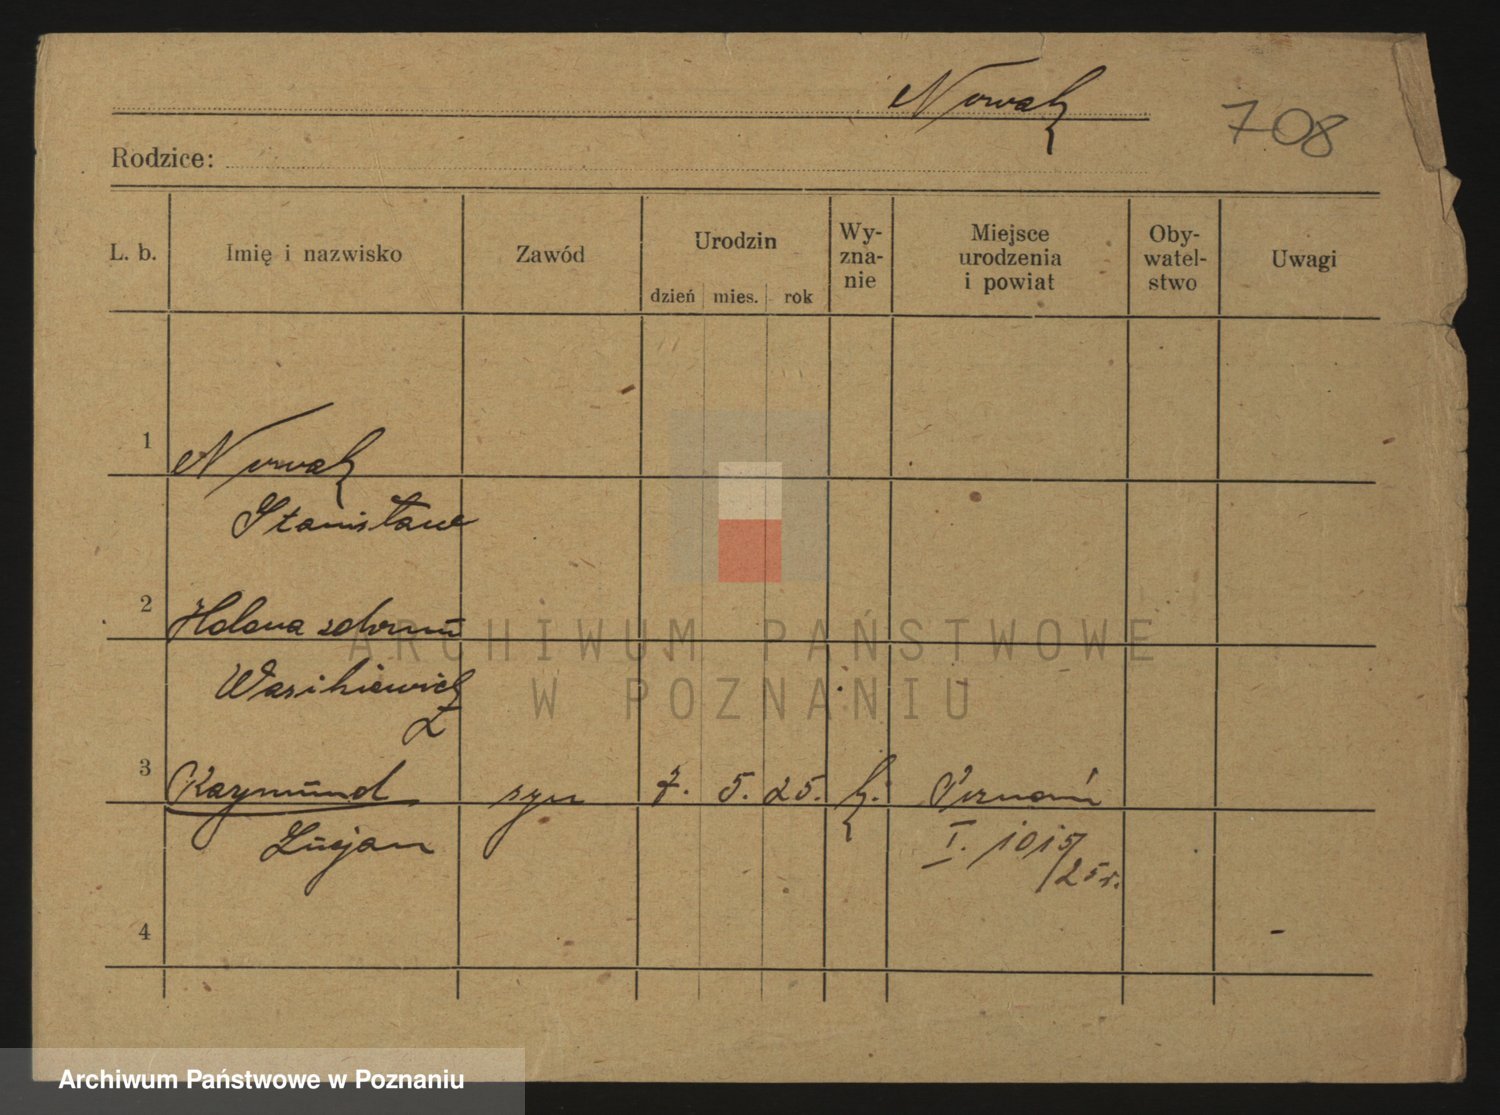 Nowak
708
Rodzice:
L. b.
Imię i nazwisko
Zawód
Urodzin
dzień mies. rok
Wy-
zna-
nie
Miejsce
urodzenia
i powiat
Oby-
watel-
stwo
Uwagi
1
Nowak
Stanisław
2
Helena
3
Raymund syn 7. 5. 25. k. Poznań
Lucjan I. 1015
/25r.
4
ARCHIWUM PAŃSTWOWE
W POZNANIU
Archiwum Państwowe w Poznaniu